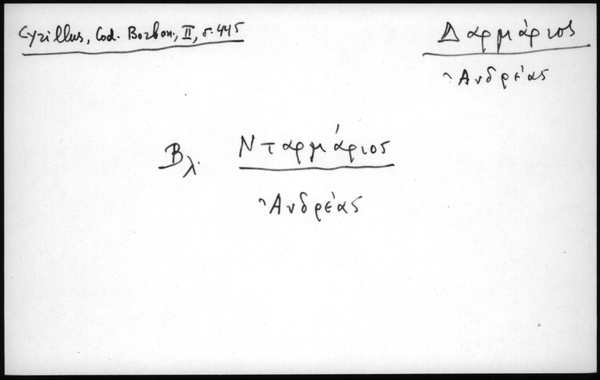 Cyrillus, Cod. Borbon., II, σ. 445
Δαρμάριος
Ἀνδρέας
Βλ. Νταρμάριος
Ἀνδρέας